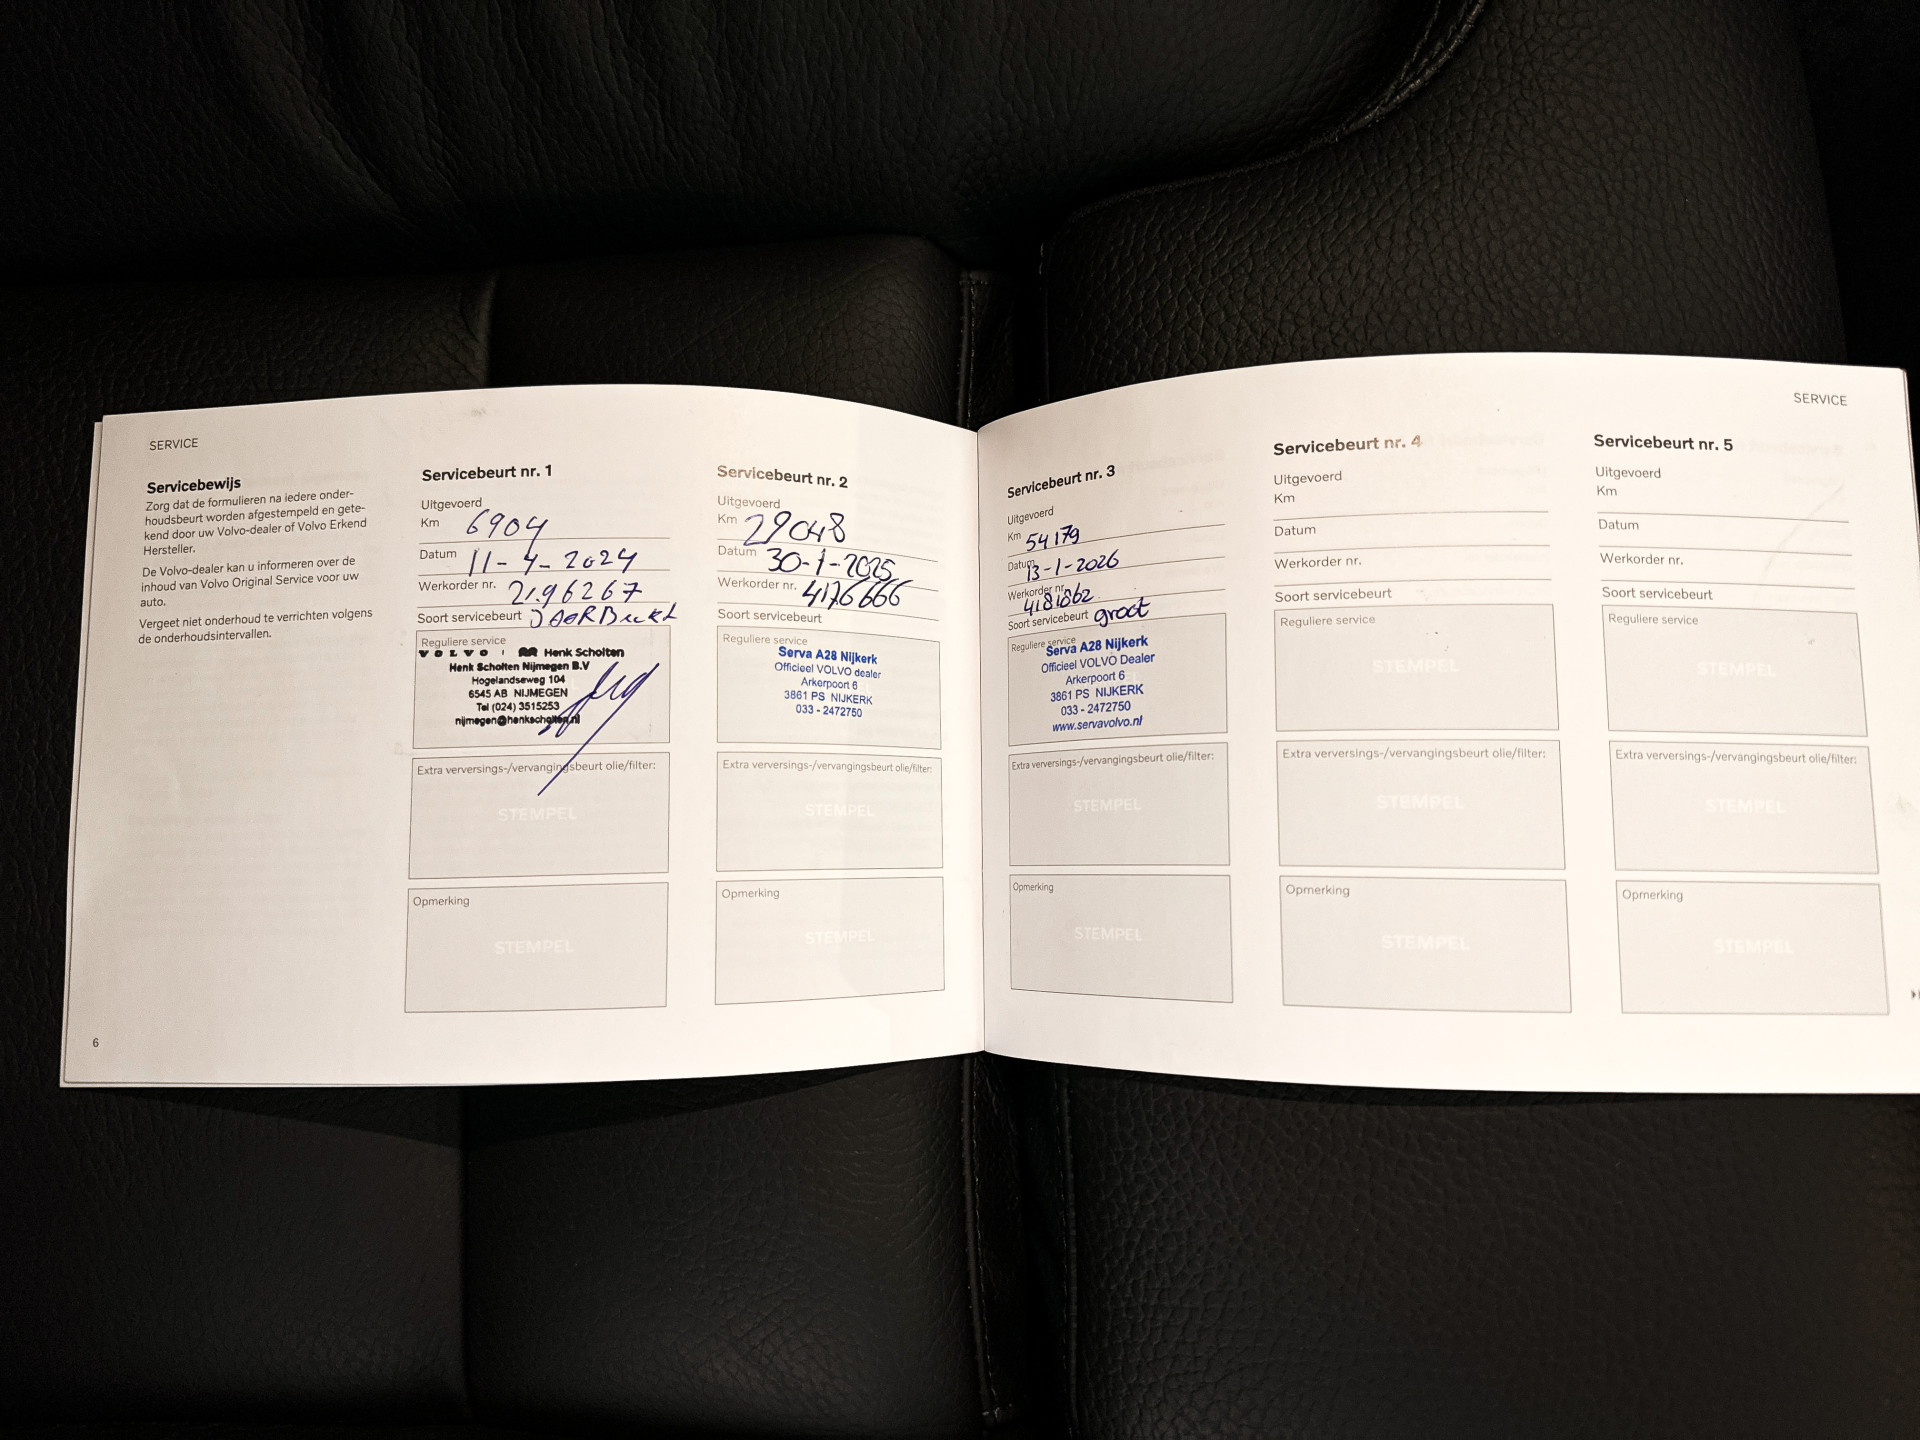 SERVICE
Servicebewijs
Zorg dat de formulieren na iedere onder-
houdsbeurt worden afgestempeld en gete-
kend door uw Volvo-dealer of Volvo Erkend
Hersteller.
De Volvo-dealer kan u informeren over de
inhoud van Volvo Original Service voor uw
auto.
Vergeet niet onderhoud te verrichten volgens
de onderhoudsintervallen.
6
Servicebeurt nr. 1
Uitgevoerd
Km 6904
Datum 11-4-2024
Werkorder nr. 2196267
Soort servicebeurt
Reguliere service
VOLVO Henk Scholten
Henk Scholten Nijmegen B.V
Hogelandseweg 104
6545 AB NIJMEGEN
Tel (024) 3515253
nijmegen@henkscholten.nl
Extra verversings-/vervangingsbeurt olie/filter:
STEMPEL
Opmerking
STEMPEL
Servicebeurt nr. 2
Uitgevoerd
Km 29048
Datum 30-1-2025
Werkorder nr. 4176666
Soort servicebeurt
Reguliere service
Serva A28 Nijkerk
Officieel VOLVO dealer
Arkerpoort 6
3861 PS NIJKERK
033 - 2472750
Extra verversings-/vervangingsbeurt olie/filter:
STEMPEL
Opmerking
STEMPEL
Servicebeurt nr. 3
Uitgevoerd
Km 54179
Datum 13-1-2026
Werkorder nr. 4181862
Soort servicebeurt groot
Reguliere service
Serva A28 Nijkerk
Officieel VOLVO Dealer
Arkerpoort 6
3861 PS NIJKERK
033 - 2472750
www.servavolvo.nl
Extra verversings-/vervangingsbeurt olie/filter:
STEMPEL
Opmerking
STEMPEL
SERVICE
Servicebeurt nr. 4
Uitgevoerd
Km
Datum
Werkorder nr.
Soort servicebeurt
Reguliere service
STEMPEL
Extra verversings-/vervangingsbeurt olie/filter:
STEMPEL
Opmerking
STEMPEL
Servicebeurt nr. 5
Uitgevoerd
Km
Datum
Werkorder nr.
Soort servicebeurt
Reguliere service
STEMPEL
Extra verversings-/vervangingsbeurt olie/filter:
STEMPEL
Opmerking
STEMPEL